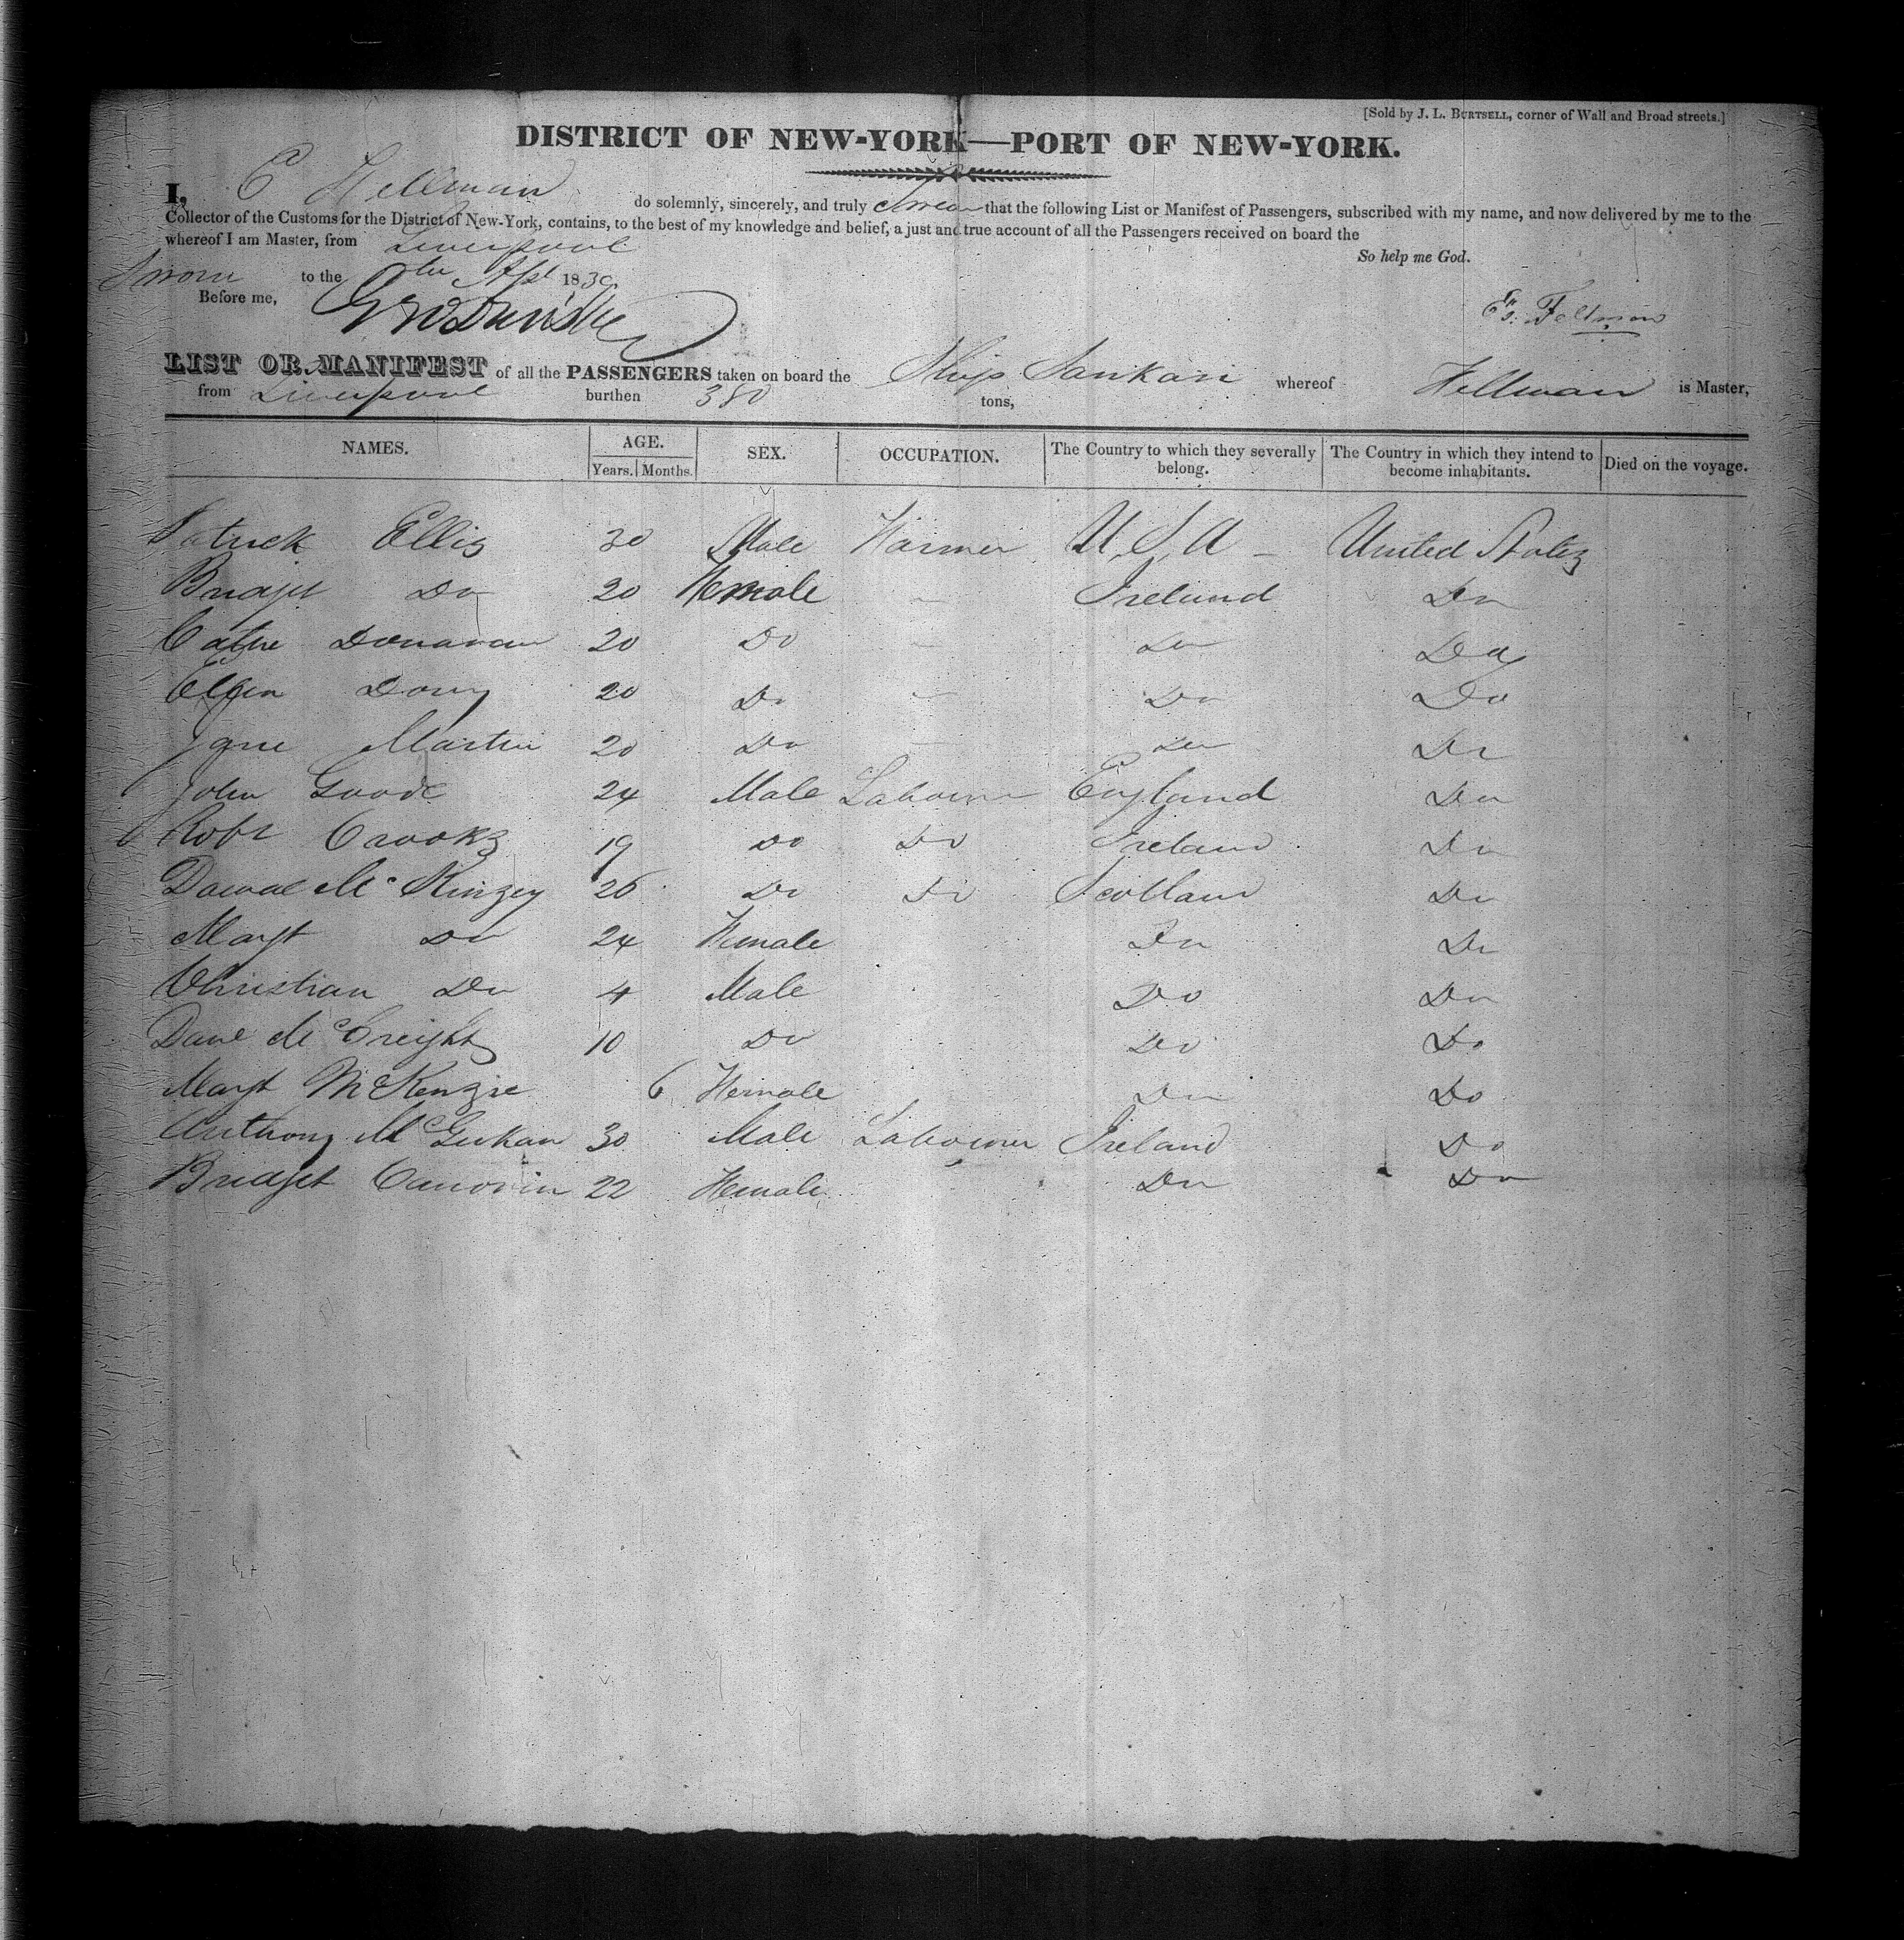 [Sold by J. L. BURTSELL, corner of Wall and Broad streets.]
DISTRICT OF NEW-YORK—PORT OF NEW-YORK.
I, do solemnly, sincerely, and truly swear that the following List or Manifest of Passengers, subscribed with my name, and now delivered by me to the
Collector of the Customs for the District of New-York, contains, to the best of my knowledge and belief, a just and true account of all the Passengers received on board the
whereof I am Master, from Liverpool
So help me God.
Sworn to the Apl 1839
Before me,
LIST OR MANIFEST of all the PASSENGERS taken on board the Ship whereof is Master,
from Liverpool burthen 380 tons,
NAMES. AGE. SEX. OCCUPATION. The Country to which they severally belong. The Country in which they intend to become inhabitants. Died on the voyage.
Years. Months.
Patrick Ellis 30 Male Farmer U.S.A - United States
Bridget Do 20 Female - Ireland Do
Cathe Donavan 20 Do - Do Do
Ellen 20 Do - Do Do
Jane Martin 20 Do - Do Do
John Goode 24 Male Labourer England Do
Robt Crooks 19 Do Do Ireland Do
Mc Kinzey 26 Do Do Scotland Do
Margt Do 24 Female Do Do
Christian Do 4 Male Do Do
McCreight 10 Do Do Do
Margt McKenzie 6 Female Do Do
Anthony 30 Male Labourer Ireland Do
Bridget 22 Female Do Do